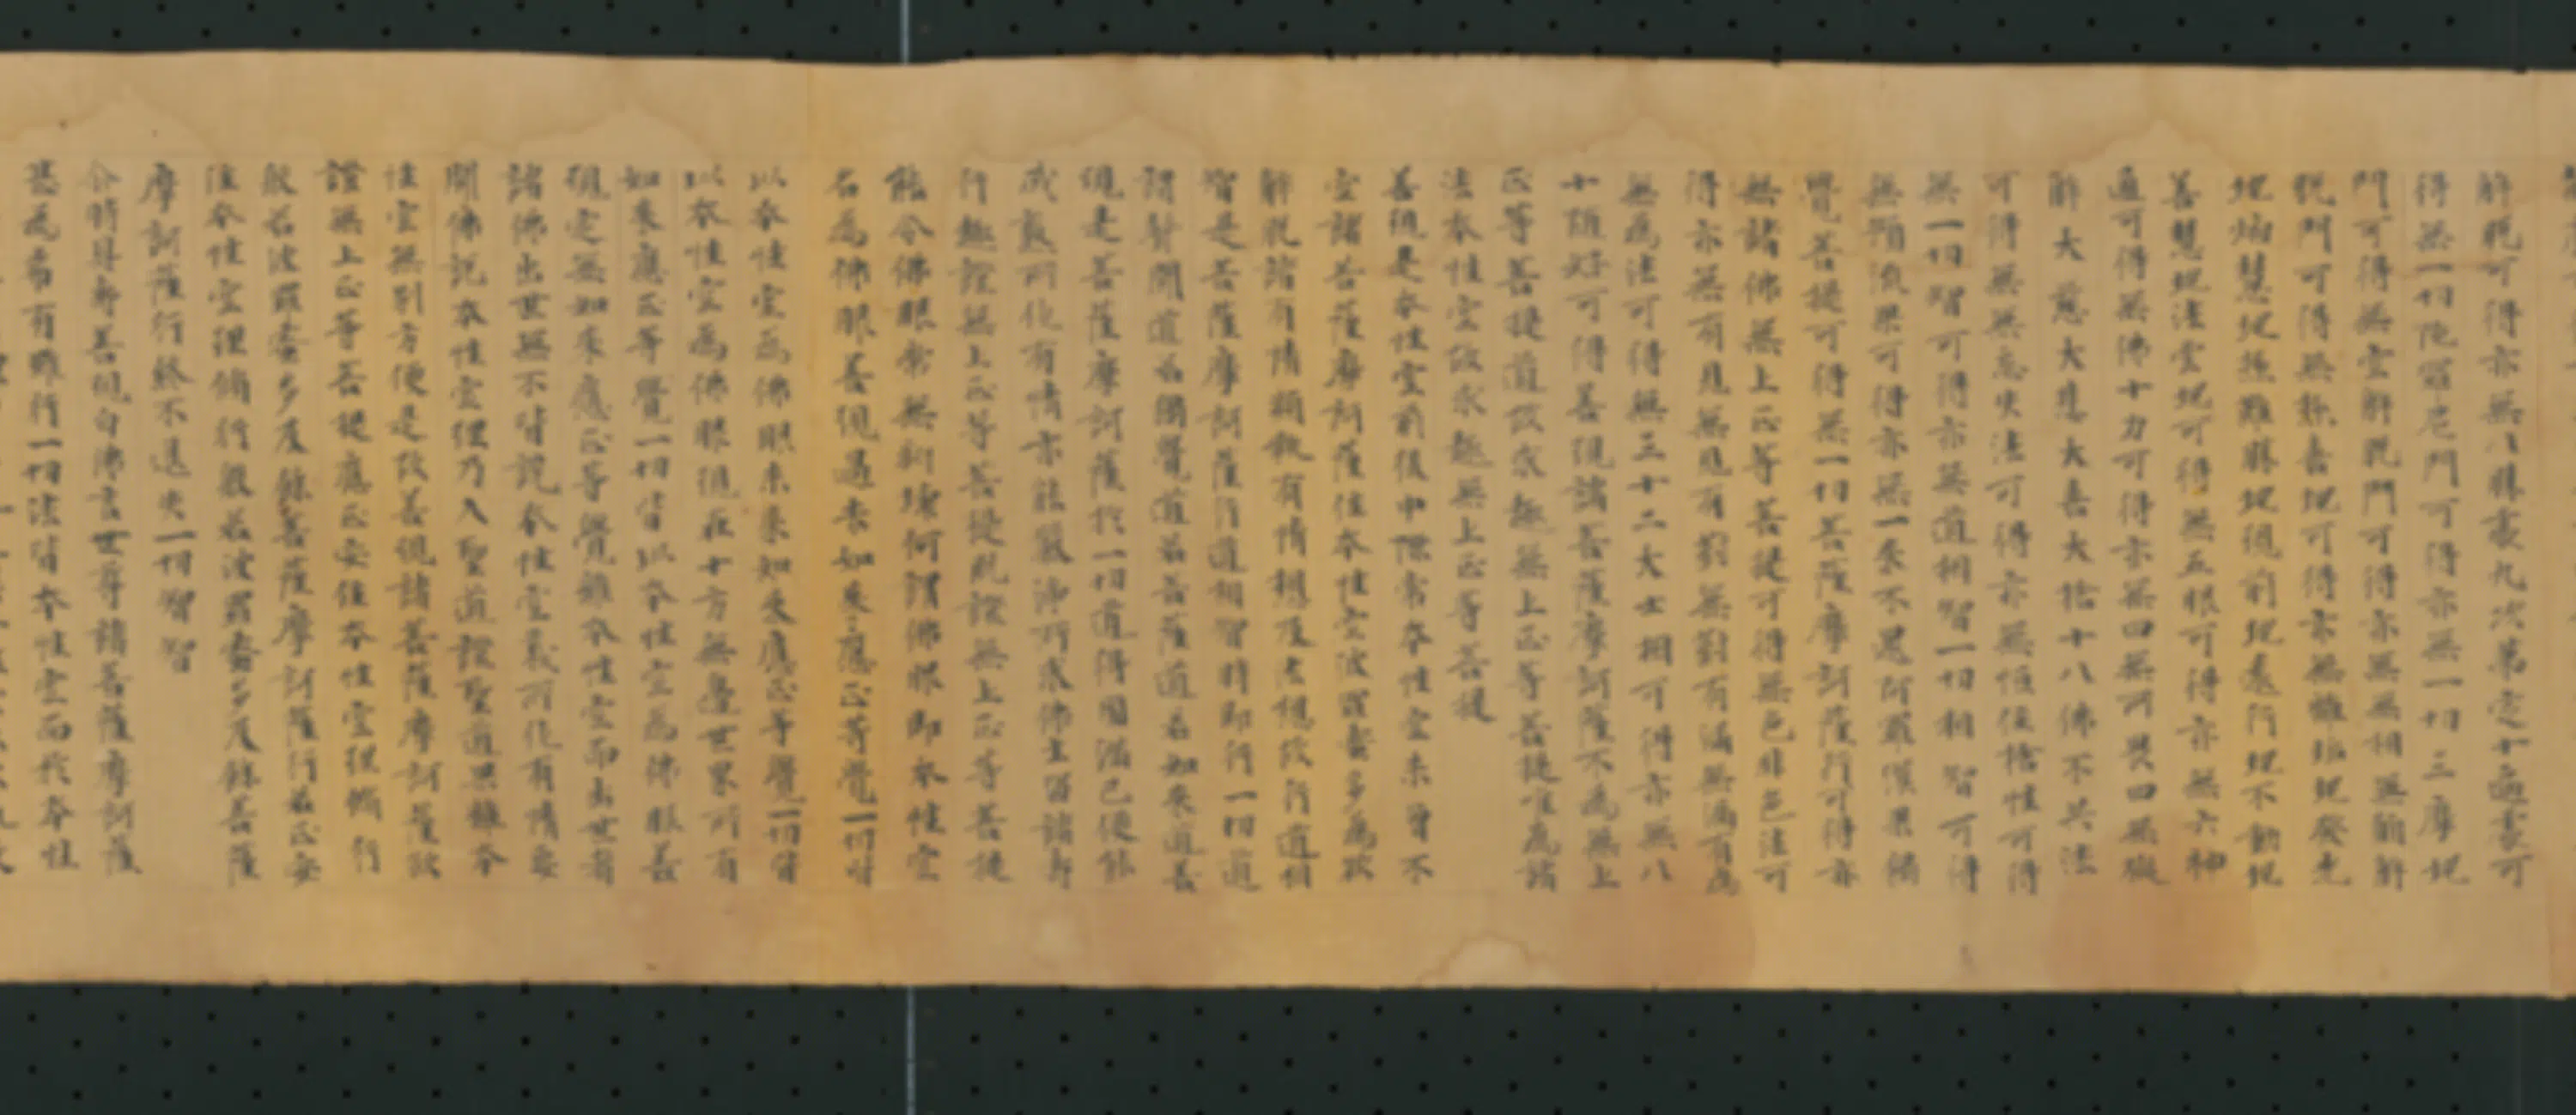 解脫可得亦無八勝處九次第定十遍處可
得無一切陀羅尼門可得亦無一切三摩地
門可得無空解脫門可得亦無無相無願解
脫門可得無極喜地可得亦無離垢地發光
地焰慧地極難勝地現前地遠行地不動地
善慧地法雲地可得無五眼可得亦無六神
通可得無佛十力可得亦無四無所畏四無礙
解大慈大悲大喜大捨十八佛不共法
可得無無忘失法可得亦無恒住捨性可得
無一切智可得亦無道相智一切相智可得
無預流果可得亦無一來不還阿羅漢果獨
覺菩提可得無一切菩薩摩訶薩行可得亦
無諸佛無上正等菩提可得無色非色法可
得亦無有見無見有對無對有漏無漏有為
無為法可得無三十二大士相可得亦無八
十隨好可得善現諸菩薩摩訶薩不為無上
正等菩提道故求趣無上正等菩提唯為諸
法本性空故求趣無上正等菩提
善現是本性空前後中際常本性空未曾不
空諸菩薩摩訶薩住本性空波羅蜜多為欲
解脫諸有情類執有情想及法想故行道相
智是菩薩摩訶薩行道相智時即行一切道
謂聲聞道若獨覺道若菩薩道若如來道善
現是菩薩摩訶薩於一切道得圓滿已便能
成熟所化有情亦能嚴淨所求佛土留諸壽
行趣證無上正等菩提既證無上正等菩提
能令佛眼常無斷壞何謂佛眼即本性空
名為佛眼善現過去如來應正等覺一切皆
以本性空為佛眼未來如來應正等覺一切皆
以本性空為佛眼現在十方無邊世界所有
如來應正等覺一切皆以本性空為佛眼善
現定無如來應正等覺離本性空而出世者
諸佛出世無不皆說本性空義所化有情要
聞佛說本性空理乃入聖道證聖道果離本
性空無別方便是故善現諸菩薩摩訶薩欲
證無上正等菩提應正安住本性空理修行
般若波羅蜜多及餘菩薩摩訶薩行若正安
住本性空理修行般若波羅蜜多及餘菩薩
摩訶薩行終不退失一切智智
尒時具壽善現白佛言世尊諸菩薩摩訶薩
甚為希有雖行一切法皆本性空而於本性